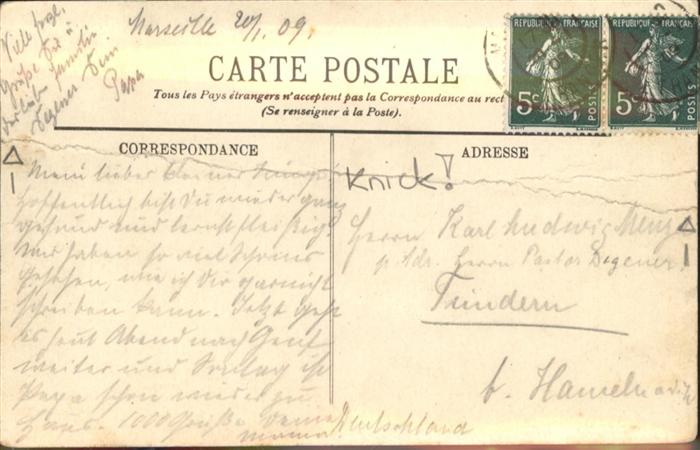 Marseille 20/1. 09.
Viele
Grüße Dir u
Familie
Degener Dein
Papa
CARTE POSTALE
Tous les Pays étrangers n'acceptent pas la Correspondance au rect
(Se renseigner à la Poste).
REPUBLIQUE FRANÇAISE
5c
POSTES
REPUBLIQUE FRANÇAISE
5c
POSTES
CORRESPONDANCE
Mein lieber kleiner
Hoffentlich bist Du wieder ganz
gesund und lernst fleißig.
Wir haben so viel Schönes
gesehen, wie ich Dir garnicht
schreiben kann. Jetzt geht
es heut Abend nach Genf
weiter und Sonntag ist
Papa schon wieder zu
Haus. 1000 Grüße Deine
Mama
ADRESSE
Knick!
Herrn Karl Ludwig Menz
p. Adr. Herrn Pastor Degener
Tündern
b. Hameln
Deutschland